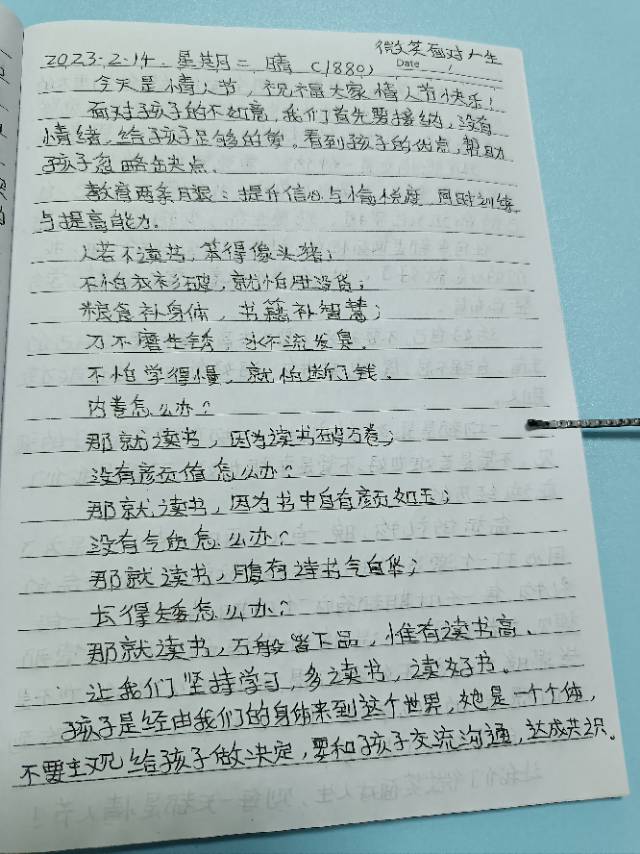 微笑面对人生
2023.2.14. 星期二 晴 (1880) Date
今天是情人节，祝福大家情人节快乐！
面对孩子的不如意，我们首先要接纳，没有
情绪，给孩子足够的爱。看到孩子的优点，帮助
孩子忽略缺点。
教育两条腿：提升信心与愉悦度，同时训练
与提高能力。
人若不读书，笨得像头猪；
不怕衣衫破，就怕肚没货；
粮食补身体，书籍补智慧；
刀不磨生锈，水不流发臭，
不怕学得慢，就怕断了钱。
内卷怎么办？
那就读书，因为读书破万卷；
没有颜值怎么办？
那就读书，因为书中自有颜如玉；
没有气质怎么办？
那就读书，腹有诗书气自华；
长得矮怎么办？
那就读书，万般皆下品，惟有读书高。
让我们坚持学习，多读书，读好书。
孩子是经由我们的身体来到这个世界，她是一个个体，
不要主观给孩子做决定，要和孩子交流沟通，达成共识。